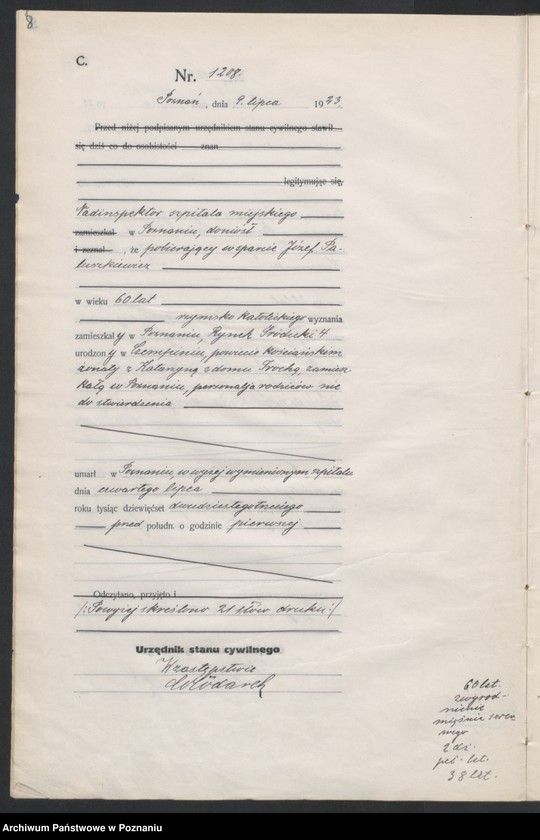 8
C.
Nr. 1208.
Poznań, dnia 9. lipca 1923.
Przed niżej podpisanym urzędnikiem stanu cywilnego stawił
się dziś co do osobistości znan
legitymując się,
Nadinspektor szpitala miejskiego
zamieszkał w Poznaniu, doniósł
i zeznał, że pobierający wsparcie Józef Pa-
luszkiewicz
w wieku 60 lat
rzymsko katolickiego wyznania
zamieszkały w Poznaniu, Rynek Śródecki 4
urodzony w Czempiniu, powiecie kościańskim
żonaty z Katarzyną z domu Trochą, zamiesz-
kałą w Poznaniu, personalja rodziców nie
do stwierdzenia
umarł w Poznaniu, w wyżej wymienionym szpitalu
dnia czwartego lipca
roku tysiąc dziewięćset dwudziestegotrzeciego
przed połudn. o godzinie pierwszej
Odczytano, przyjęto i
/: Powyżej skreślono 21 słów druku :/
Urzędnik stanu cywilnego
W zastępstwie
Włodarek
60 lat.
zwyrod-
nienie
mięśnia serco
wego
2 dz.
peł. let.
38 lat.
Archiwum Państwowe w Poznaniu